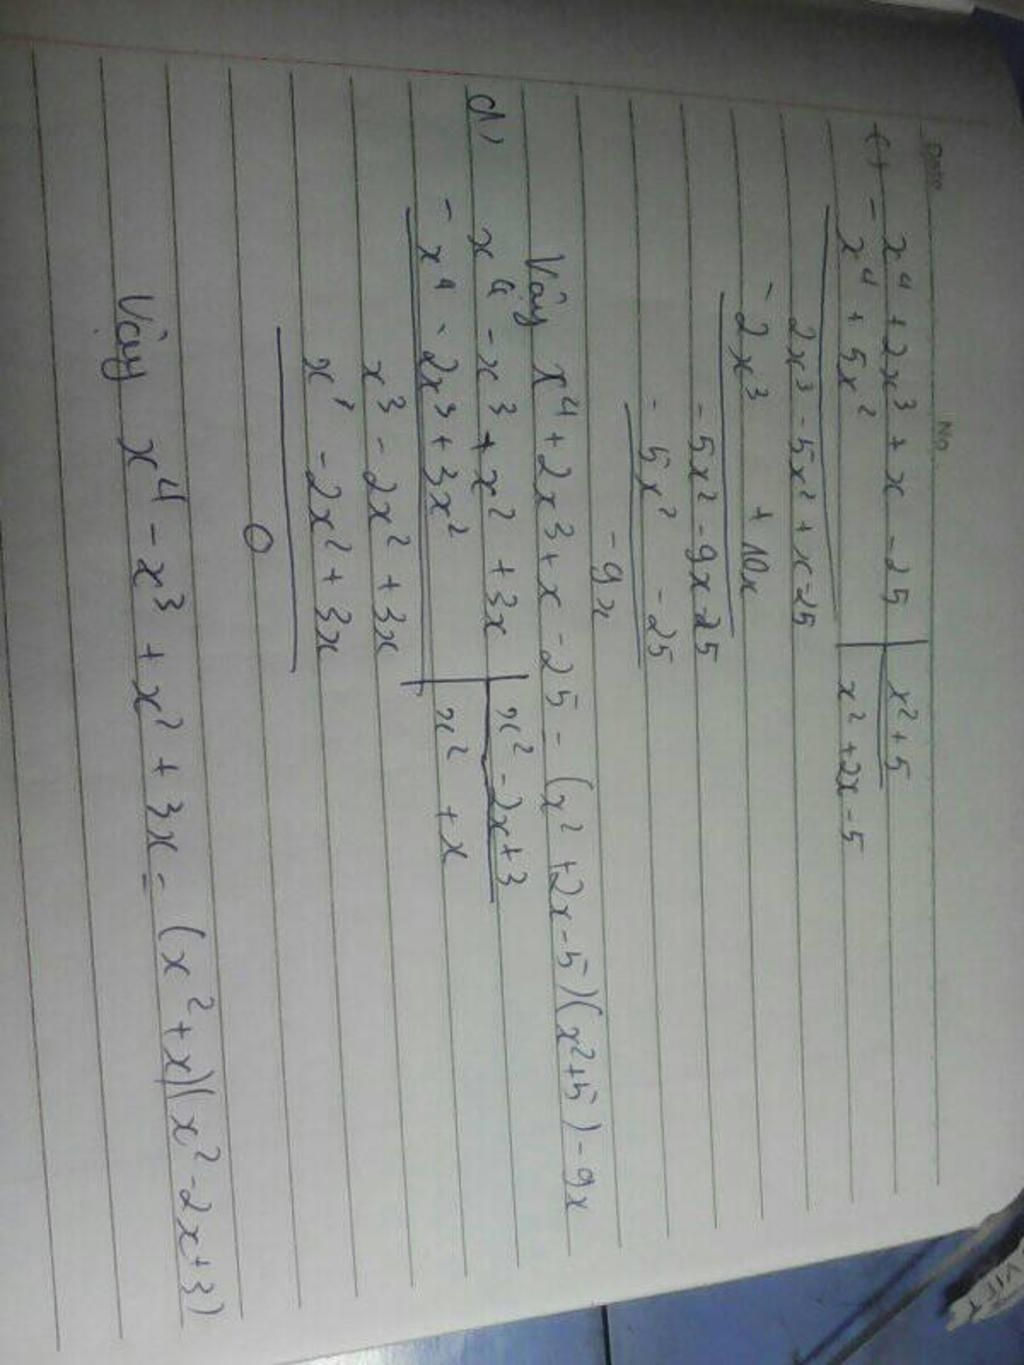 Date No
c) - x⁴ + 2x³ + x - 25 | x² + 5
x⁴ + 5x² | x² + 2x - 5
2x³ - 5x² + x - 25
- 2x³ + 10x
- 5x² - 9x 25
- 5x² - 25
- 9x
Vậy x⁴ + 2x³ + x - 25 - (x² + 2x - 5)(x² + 5) - 9x
d) x⁴ - x³ + x² + 3x | x² - 2x + 3
- x⁴ - 2x³ + 3x² | x² + x
x³ - 2x² + 3x
x³ - 2x² + 3x
0
Vậy x⁴ - x³ + x² + 3x = (x² + x)(x² - 2x + 3)
VIET